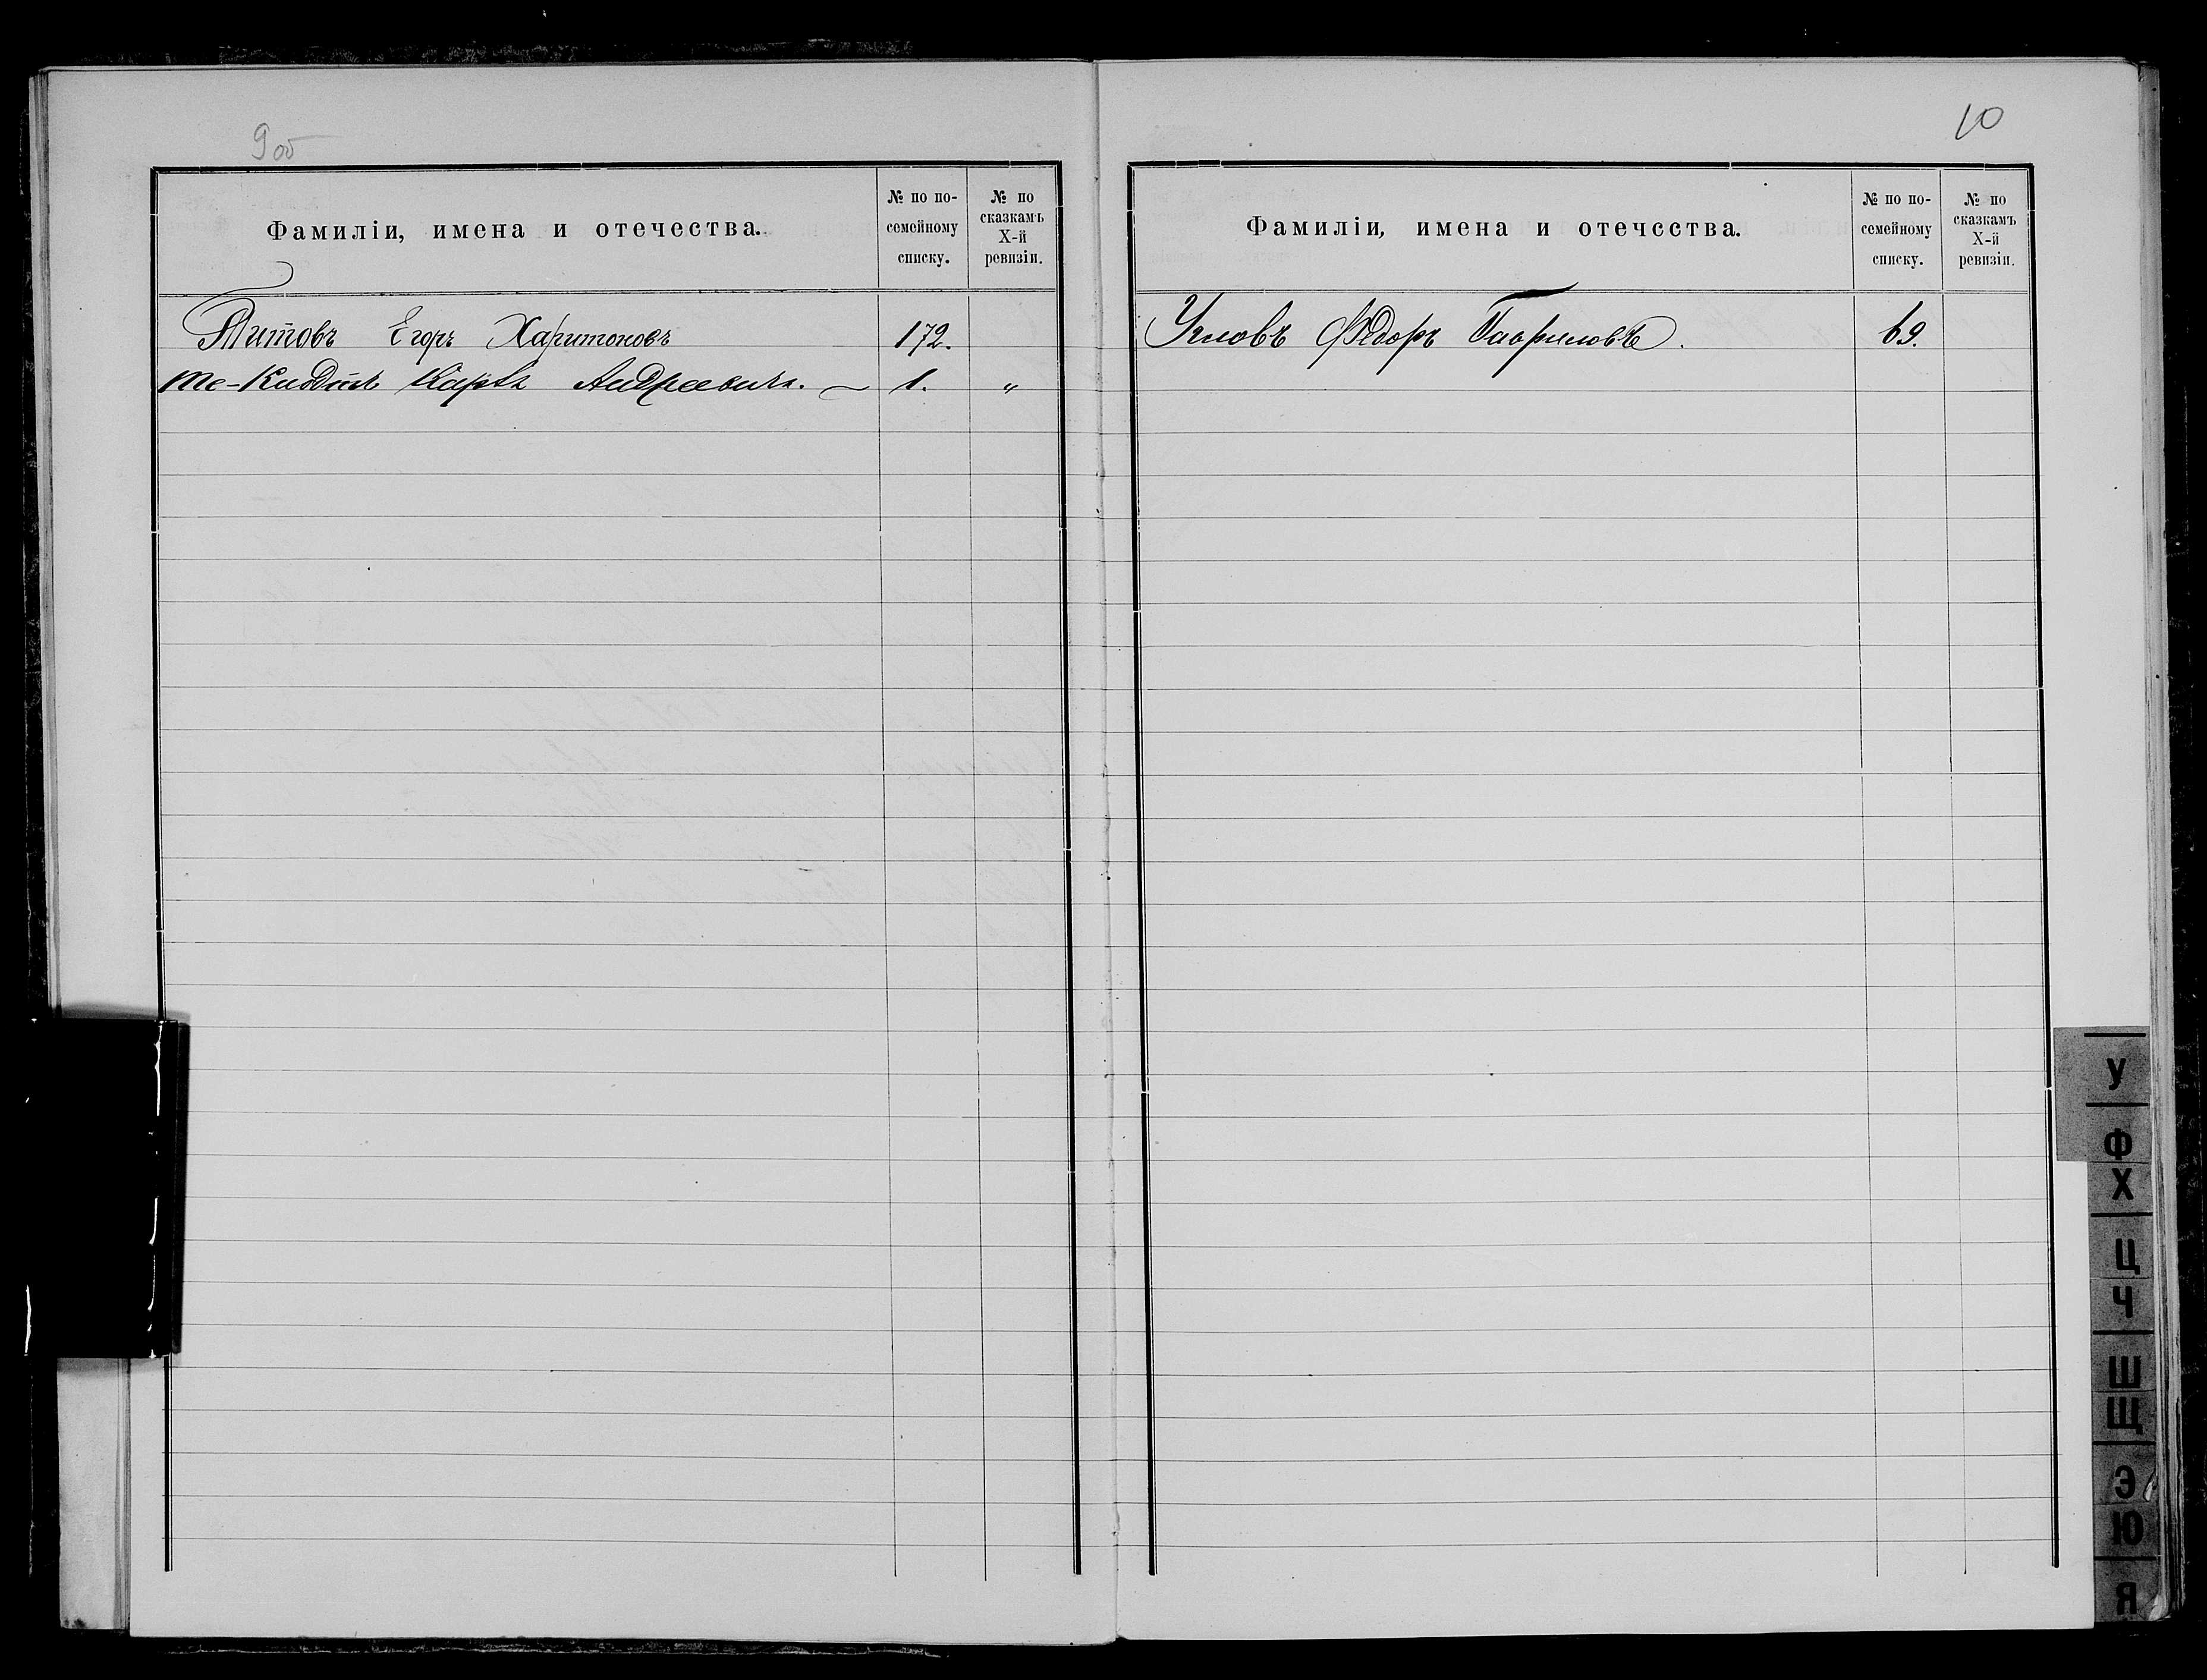 9 об
Фамиліи, имена и отечества.
№ по по-
семейному
списку.
№ по
сказкамъ
X-й
ревизіи.
Титовъ Егоръ Харитоновъ 172.
Карлъ Андреевичъ. — 1. "
10
Фамиліи, имена и отечества.
№ по по-
семейному
списку.
№ по
сказкамъ
X-й
ревизіи.
Ѳедоръ Гавриловъ. 69.
У
Ф
Х
Ц
Ч
Ш
Щ
Э
Ю
Я